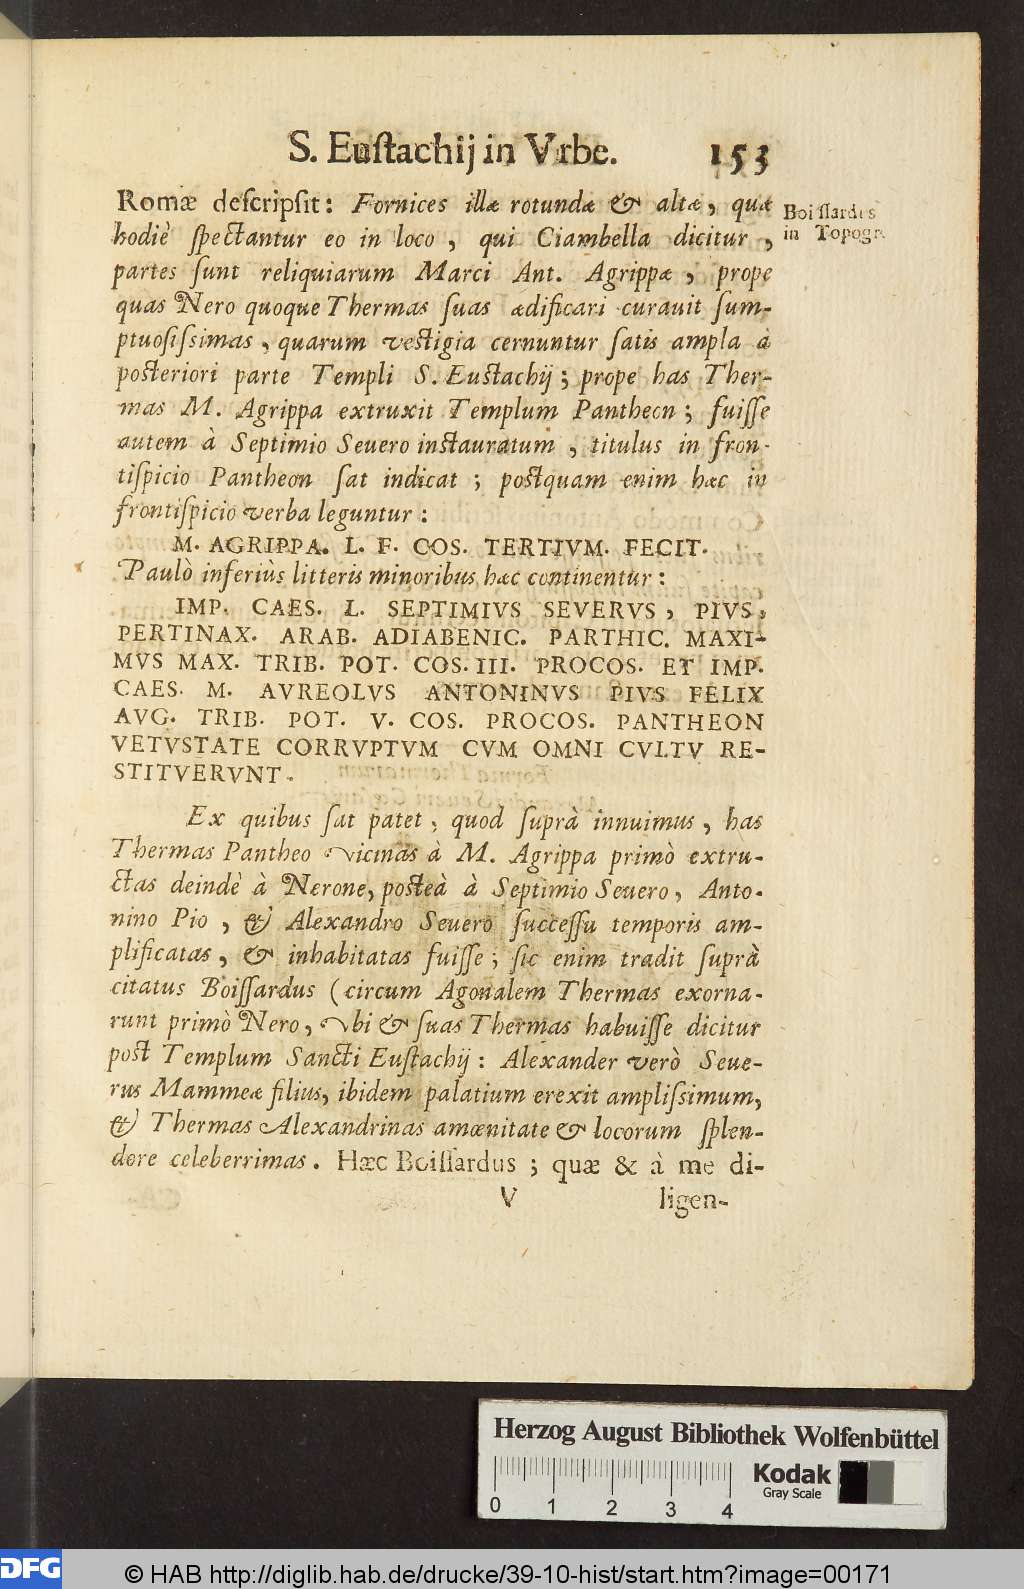 S. Euſtachij in Vrbe. 153
Romæ deſcripſit: Fornices illæ rotundæ & altæ, quæ
hodiè ſpectantur eo in loco, qui Ciambella dicitur,
partes ſunt reliquiarum Marci Ant. Agrippæ, prope
quas Nero quoque Thermas ſuas ædificari curauit ſum-
ptuoſiſsimas, quarum veſtigia cernuntur ſatis ampla à
poſteriori parte Templi S. Euſtachij; prope has Ther-
mas M. Agrippa extruxit Templum Pantheon; fuiſſe
autem à Septimio Seuero inſtauratum, titulus in fron-
tiſpicio Pantheon ſat indicat; poſtquam enim hæc in
frontiſpicio verba leguntur:
Boiſſardus
in Topogr.
M. AGRIPPA. L. F. COS. TERTIVM. FECIT.
Paulò inferiùs litteris minoribus hæc continentur:
IMP. CAES. L. SEPTIMIVS SEVERVS, PIVS,
PERTINAX. ARAB. ADIABENIC. PARTHIC. MAXI-
MVS MAX. TRIB. POT. COS. III. PROCOS. ET IMP.
CAES. M. AVREOLVS ANTONINVS PIVS FELIX
AVG. TRIB. POT. V. COS. PROCOS. PANTHEON
VETVSTATE CORRVPTVM CVM OMNI CVLTV RE-
STITVERVNT.
Ex quibus ſat patet, quod ſuprà innuimus, has
Thermas Pantheo vicinas à M. Agrippa primò extru-
ctas deindè à Nerone, poſteà à Septimio Seuero, Anto-
nino Pio, & Alexandro Seuero ſucceſſu temporis am-
plificatas, & inhabitatas fuiſſe; ſic enim tradit ſuprà
citatus Boiſſardus (circum Agonalem Thermas exorna-
runt primò Nero, vbi & ſuas Thermas habuiſſe dicitur
poſt Templum Sancti Euſtachij: Alexander verò Seue-
rus Mammeæ filius, ibidem palatium erexit ampliſsimum,
& Thermas Alexandrinas amœnitate & locorum ſplen-
dore celeberrimas. Hæc Boiſſardus; quæ & à me di-
V ligen-
Herzog August Bibliothek Wolfenbüttel
0 1 2 3 4
Kodak
Gray Scale
DFG © HAB http://diglib.hab.de/drucke/39-10-hist/start.htm?image=00171